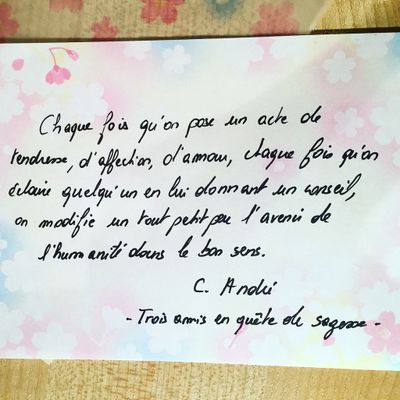 Chaque fois qu'on pose un acte de
tendresse, d'affection, d'amour, chaque fois qu'on
éclaire quelqu'un en lui donnant un conseil,
on modifie un tout petit peu l'avenir de
l'humanité dans le bon sens.
C. André
- Trois amis en quête de sagesse -